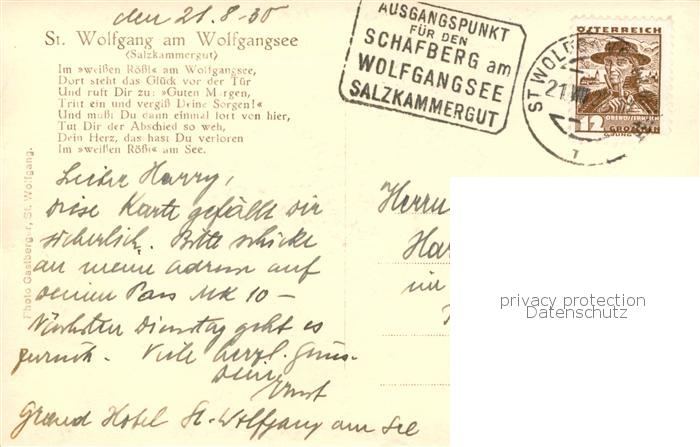 den 21.8.35
St. Wolfgang am Wolfgangsee
(Salzkammergut)
Im »weißen Rößl« am Wolfgangsee,
Dort steht das Glück vor der Tür
Und ruft Dir zu: »Guten Morgen,
Tritt ein und vergiß Deine Sorgen!«
Und mußt Du dann einmal fort von hier,
Tut Dir der Abschied so weh,
Dein Herz, das hast Du verloren
Im »weißen Rößl« am See.
AUSGANGSPUNKT
FÜR DEN
SCHAFBERG am
WOLFGANGSEE
SALZKAMMERGUT
ST. WOLF
21.VIII
ÖSTERREICH
OBERÖSTERREICH
12 GROSCHEN
Photo Gastberger, St. Wolfgang.
Lieber Harry,
diese Karte gefällt dir
sicherlich. Bitte schicke
an meine Adresse auf
deinen Pass MK 10 –
Nächsten Dienstag geht es
zurück. Viele herzl. Grüsse
dein
Ernst
Grand Hotel St. Wolfgang am See
Herrn
Har
im
privacy protection
Datenschutz